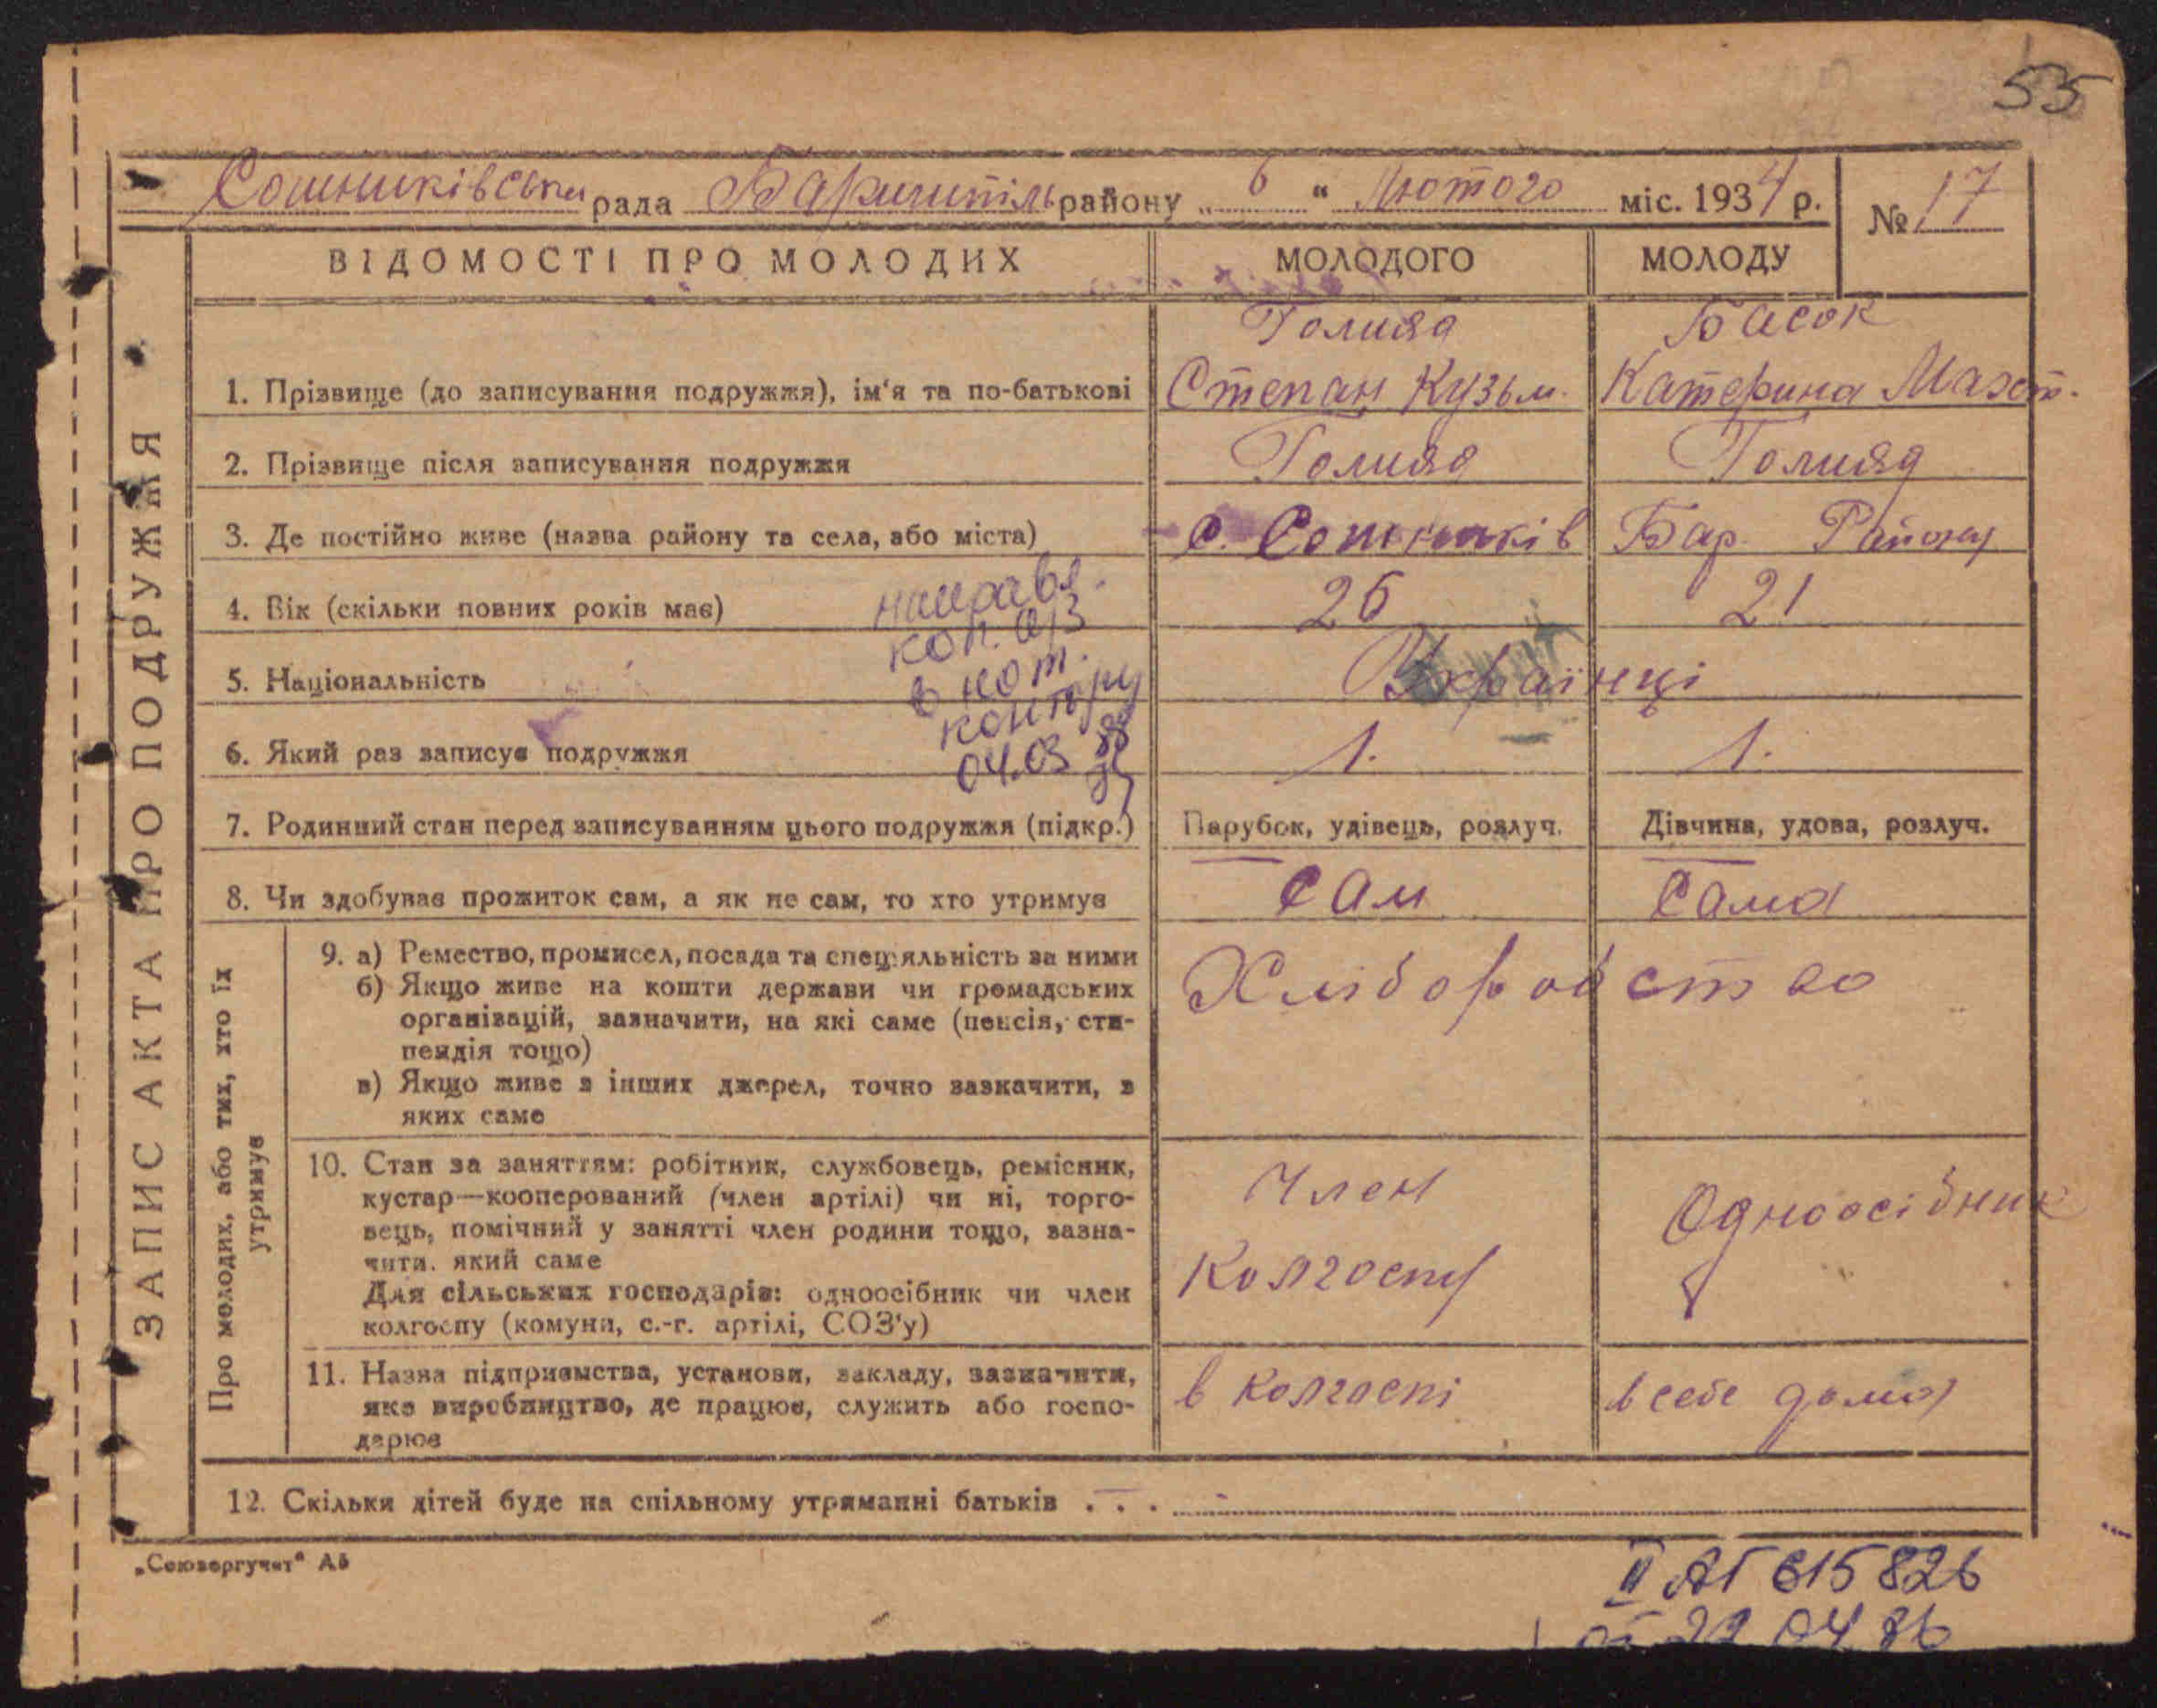 55
Сошниківська рада Баришпіль району „ 6 “ Лютого міс. 1934 р. № 17
ВІДОМОСТІ ПРО МОЛОДИХ МОЛОДОГО МОЛОДУ
ЗАПИС АКТА ПРО ПОДРУЖЖЯ
Басок
1. Прізвище (до записування подружжя), ім‘я та по-батькові Степан Кузьм. Катерина
2. Прізвище після записування подружжя
3. Де постійно живе (назва району та села, або міста) с. Сошників Бар. Району
4. Вік (скільки повних років має) 26 21
направл.
коп. а/з
в нот.
контору
04.03 88
5. Національність Українці
6. Який раз записує подружжя 1. 1.
7. Родинний стан перед записуванням цього подружжя (підкр.) Парубок, удівець, розлуч. Дівчина, удова, розлуч.
8. Чи здобуває прожиток сам, а як не сам, то хто утримує сам сама
Про молодих, або тих, хто їх
утримує
9. а) Ремество, промисел, посада та спеціяльність за ними Хліборобство
б) Якщо живе на кошти держави чи громадських
організацій, зазначити, на які саме (пенсія, сти-
пендія тощо)
в) Якщо живе з інших джерел, точно зазначити, з
яких саме
10. Стан за заняттям: робітник, службовець, ремісник, Член
кустар—кооперований (член артілі) чи ні, торго- Одноосібник
вець, помічний у занятті член родини тощо, зазна-
чити. який саме Колгоспу
Для сільських господарів: одноосібник чи член
колгоспу (комуни, с.-г. артілі, СОЗ'у)
11. Назва підприємства, установи, закладу, зазначити, в колгоспі в себе дома
яке виробництво, де працює, служить або госпо-
дарює
12. Скільки дітей буде на спільному утриманні батьків . . . -
„Союзоргучит“ Аб
II АГ 615826
от 22 04 86